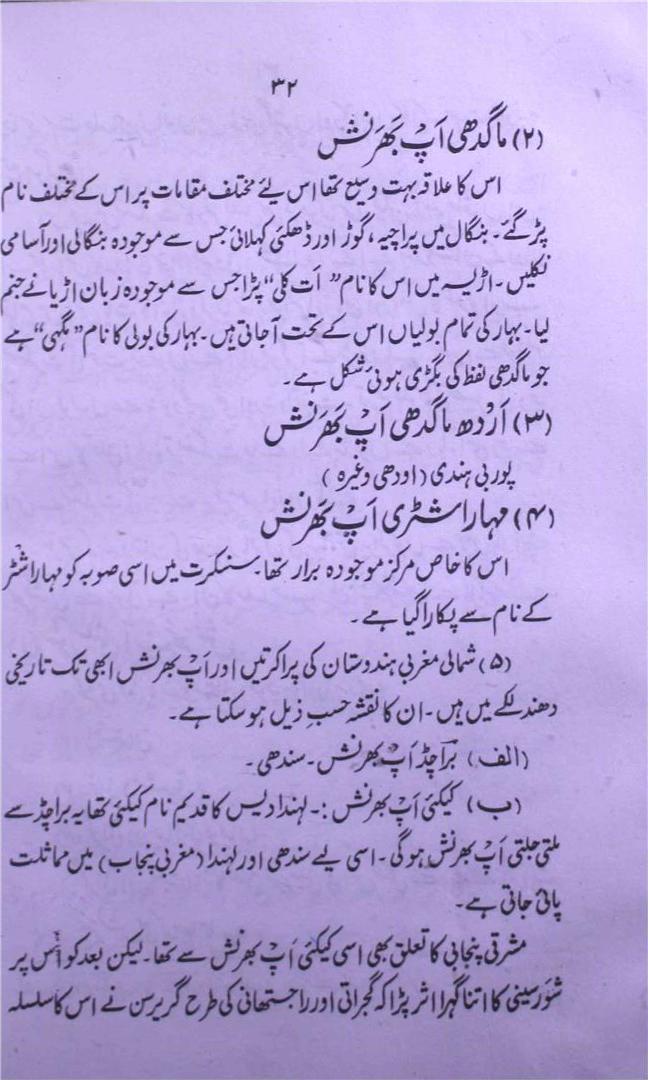 ۳۲
(۲) ماگدھی اَپ بَھرنش
اس کا علاقہ بہت وسیع تھا اس لئے مختلف مقامات پر اس کے مختلف نام
پڑ گئے۔ بنگال میں پراچیہ، گوڑ اور ڈھکئی کہلائی جس سے موجودہ بنگالی اور آسامی
نکلیں۔ اڑیسہ میں اس کا نام ”اَت کلی“ پڑا جس سے موجودہ زبان اڑیا نے جنم
لیا۔ بہار کی تمام بولیاں اس کے تحت آجاتی ہیں۔ بہار کی بولی کا نام ”مگہی“ ہے
جو ماگدھی لفظ کی بگڑی ہوئی شکل ہے۔
(۳) اَرْدھ ماگدھی اَپ بَھَرنش
پوربی ہندی (اودھی وغیرہ)
(۴) مہاراشٹری اَپ بَھرنش
اس کا خاص مرکز موجودہ برار تھا۔ سنسکرت میں اسی صوبہ کو مہاراشٹر
کے نام سے پکارا گیا ہے۔
(۵) شمالی مغربی ہندوستان کی پراکرتیں اور اَپ بھرنش ابھی تک تاریخی
دھندلکے میں ہیں۔ ان کا نقشہ حسبِ ذیل ہو سکتا ہے۔
(الف) براچڈ اَپ بھرنش۔ سندھی۔
(ب) کیکئی اَپ بھرنش :۔ لہندا دیس کا قدیم نام کیکئی تھا یہ براچڈ سے
ملتی جلتی اَپ بھرنش ہوگی۔ اسی لیے سندھی اور لہندا (مغربی پنجاب) میں مماثلت
پائی جاتی ہے۔
مشرقی پنجابی کا تعلق بھی اسی کیکئی اَپ بھرنش سے تھا۔ لیکن بعد کو اُس پر
شورسینی کا اتنا گہرا اثر پڑا کہ گجراتی اور راجستھانی کی طرح گریرسن نے اس کا سلسلہ